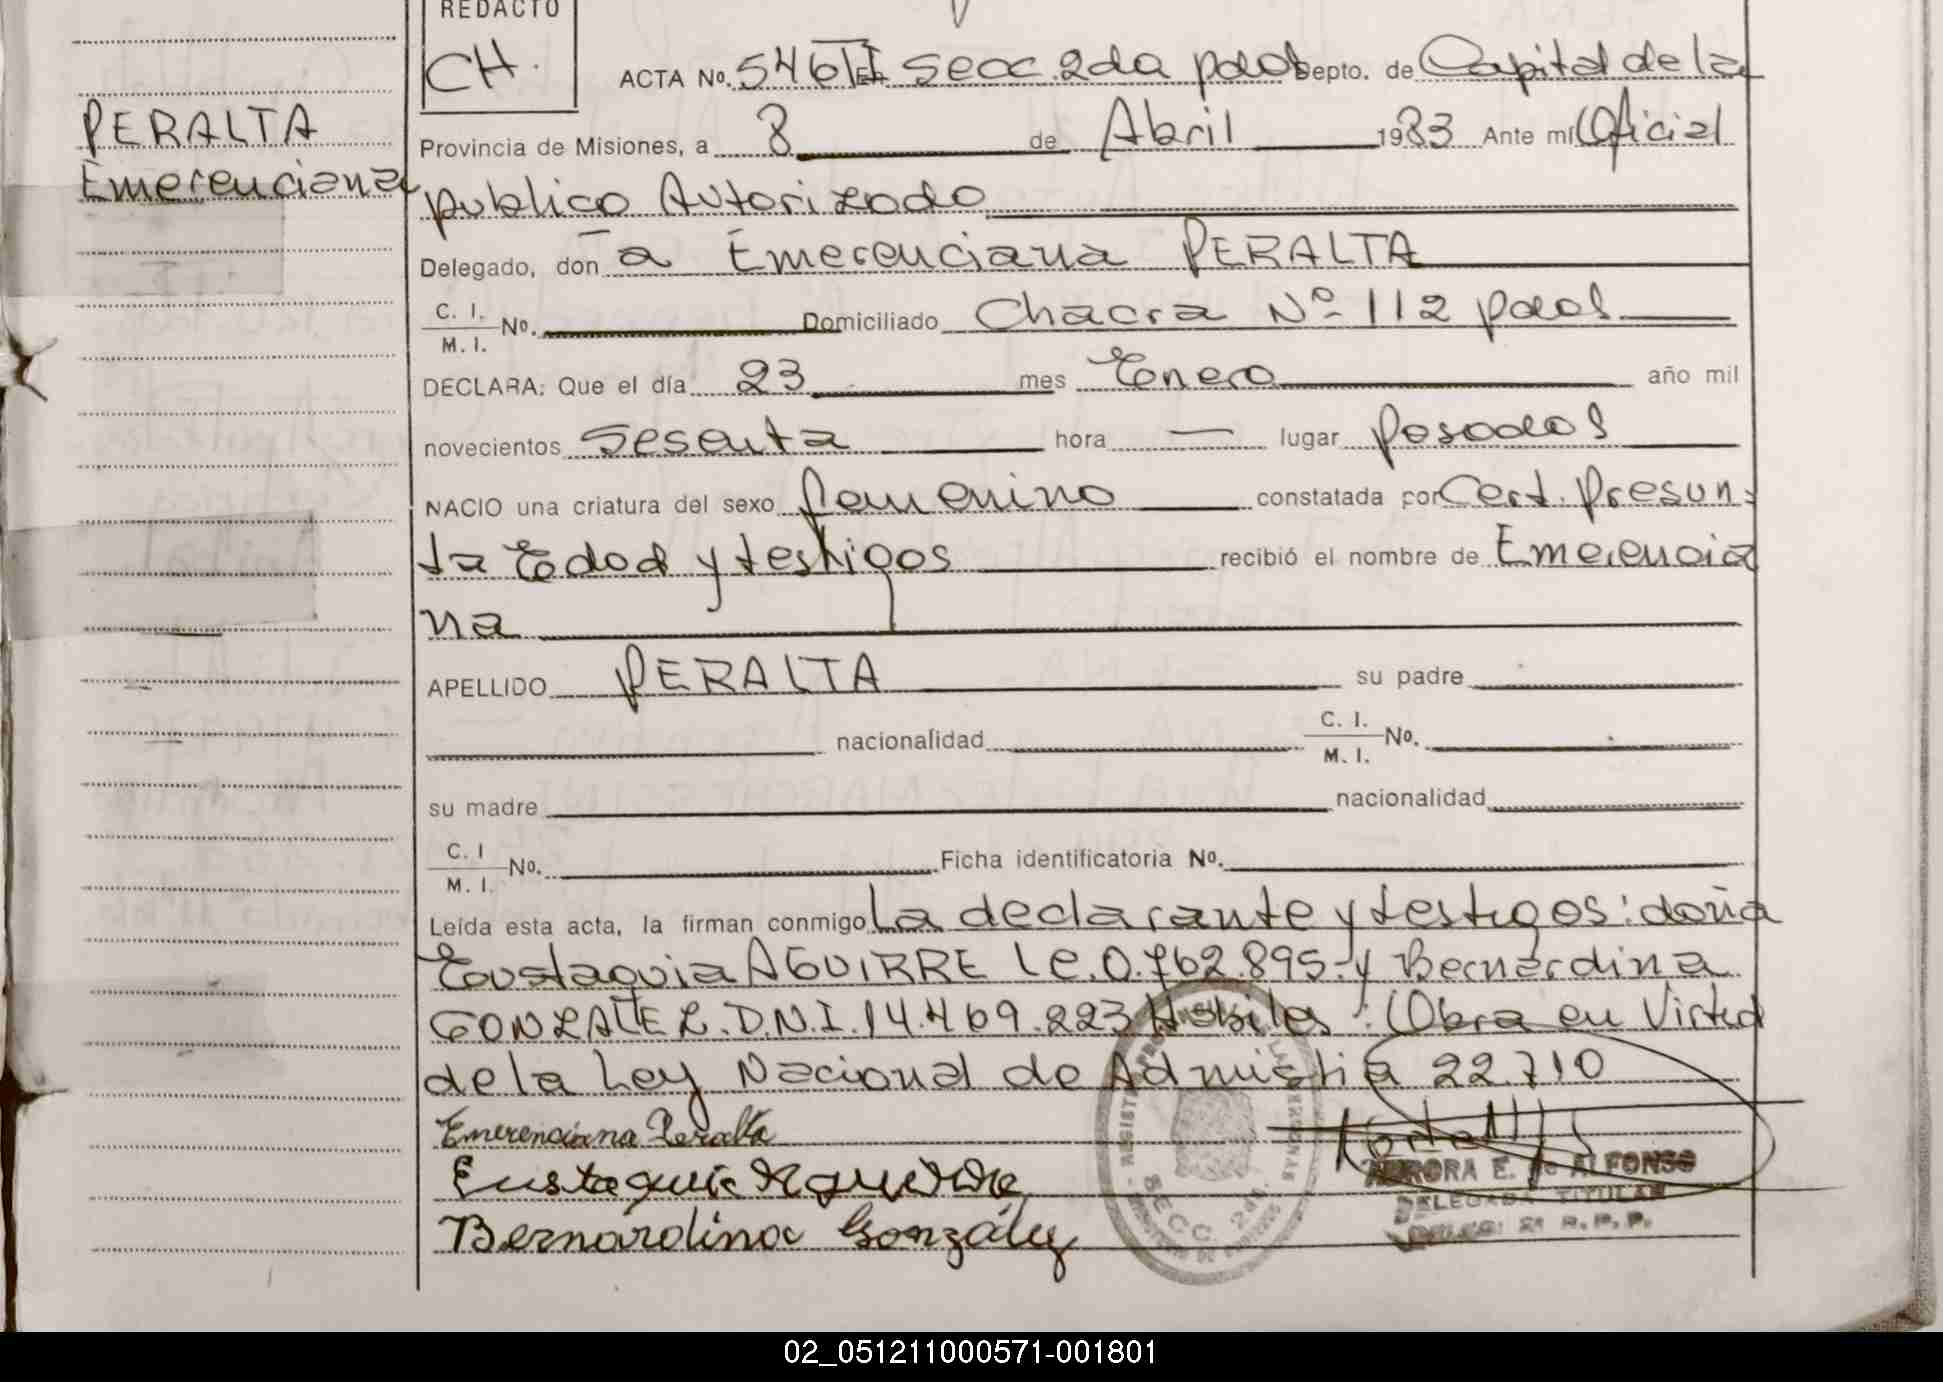 REDACTO
CH.
ACTA No. 546 Secc 2da pdas Depto. de Capital de la
PERALTA
Emerenciana
Provincia de Misiones, a 8 de Abril 1983 Ante mi Oficial
publico Autorizado
Delegado, don a Emerenciana PERALTA
C. I.
M. I. No. Domiciliado Chacra Nº 112 pdas
DECLARA: Que el día 23 mes Enero año mil
novecientos Sesenta hora — lugar Posadas
NACIO una criatura del sexo femenino constatada por Cert. Presun-
ta Edad y testigos recibió el nombre de Emerencia
na
APELLIDO PERALTA su padre
nacionalidad C. I.
M. I. No.
su madre nacionalidad
C. I
M. I. No. Ficha identificatoria No.
Leída esta acta, la firman conmigo la declarante y testigos: doña
Eustaquia AGUIRRE L.C. 0.762.895- y Bernardina
GONZALEZ. D.N.I. 14.469.223 Habiles : Obra en Virtud
de la Ley Nacional de Admistia 22.710
Emerenciana Peralta
Eustaquia Aguirre
Bernardina González
SECC. 2da.
AURORA E. de ALFONSO
DELEGADA TITULAR
DELEG. 2ª R. P. P.
02_051211000571-001801